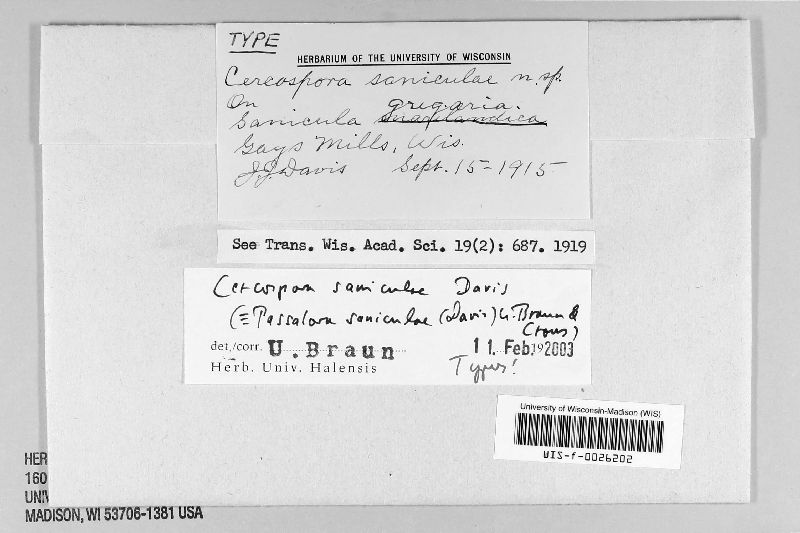 TYPE
HERBARIUM OF THE UNIVERSITY OF WISCONSIN
Cercospora saniculae n. sp.
On gregaria.
Sanicula
Gays Mills, Wis.
J.J. Davis Sept. 15-1915
See Trans. Wis. Acad. Sci. 19(2): 687. 1919
Cercospora saniculae Davis
(≡ Passalora saniculae (Davis) U. Braun &
Crous)
det./corr. U. Braun 11. Feb. 192003
Herb. Univ. Halensis Types!
University of Wisconsin-Madison (WIS)
WIS-f-0026202
HER
160
UNIV
MADISON, WI 53706-1381 USA